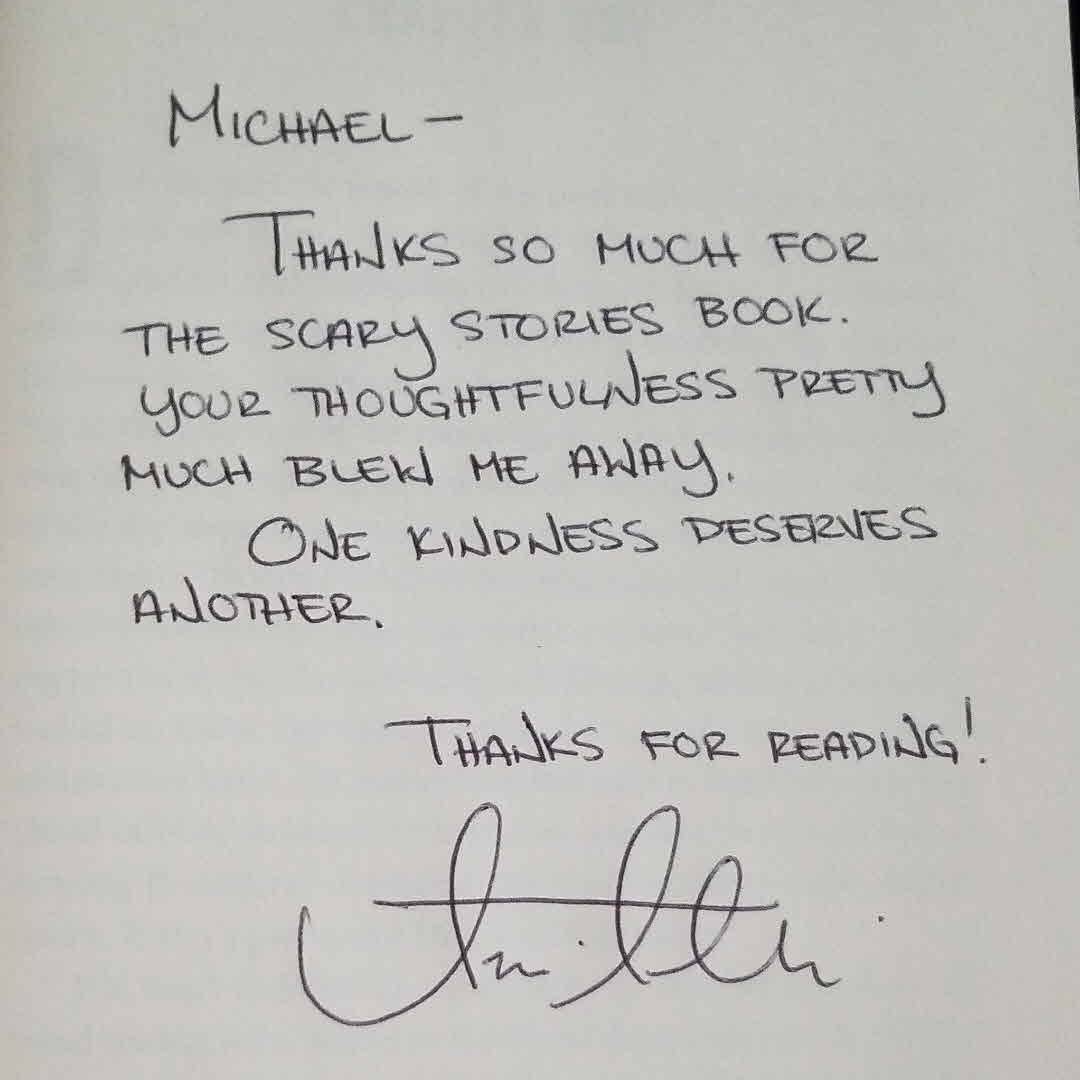 MICHAEL —
THANKS SO MUCH FOR
THE SCARY STORIES BOOK.
YOUR THOUGHTFULNESS PRETTY
MUCH BLEW ME AWAY.
ONE KINDNESS DESERVES
ANOTHER.
THANKS FOR READING!